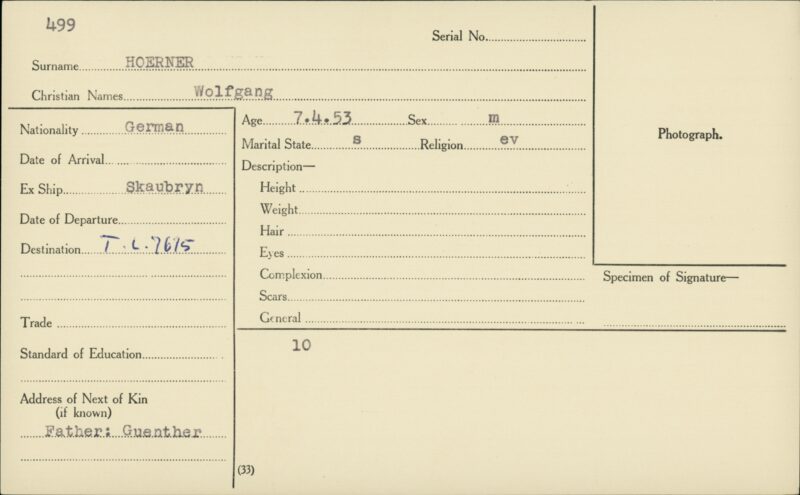 499
Serial No.
Surname HOERNER
Christian Names Wolfgang
Nationality German
Date of Arrival
Ex Ship Skaubryn
Date of Departure
Destination T.L.7675
Trade
Standard of Education
Address of Next of Kin
(if known)
Father: Guenther
Age 7.4.53 Sex m
Marital State s Religion ev
Description—
Height
Weight
Hair
Eyes
Complexion
Scars
General
10
(33)
Photograph.
Specimen of Signature—